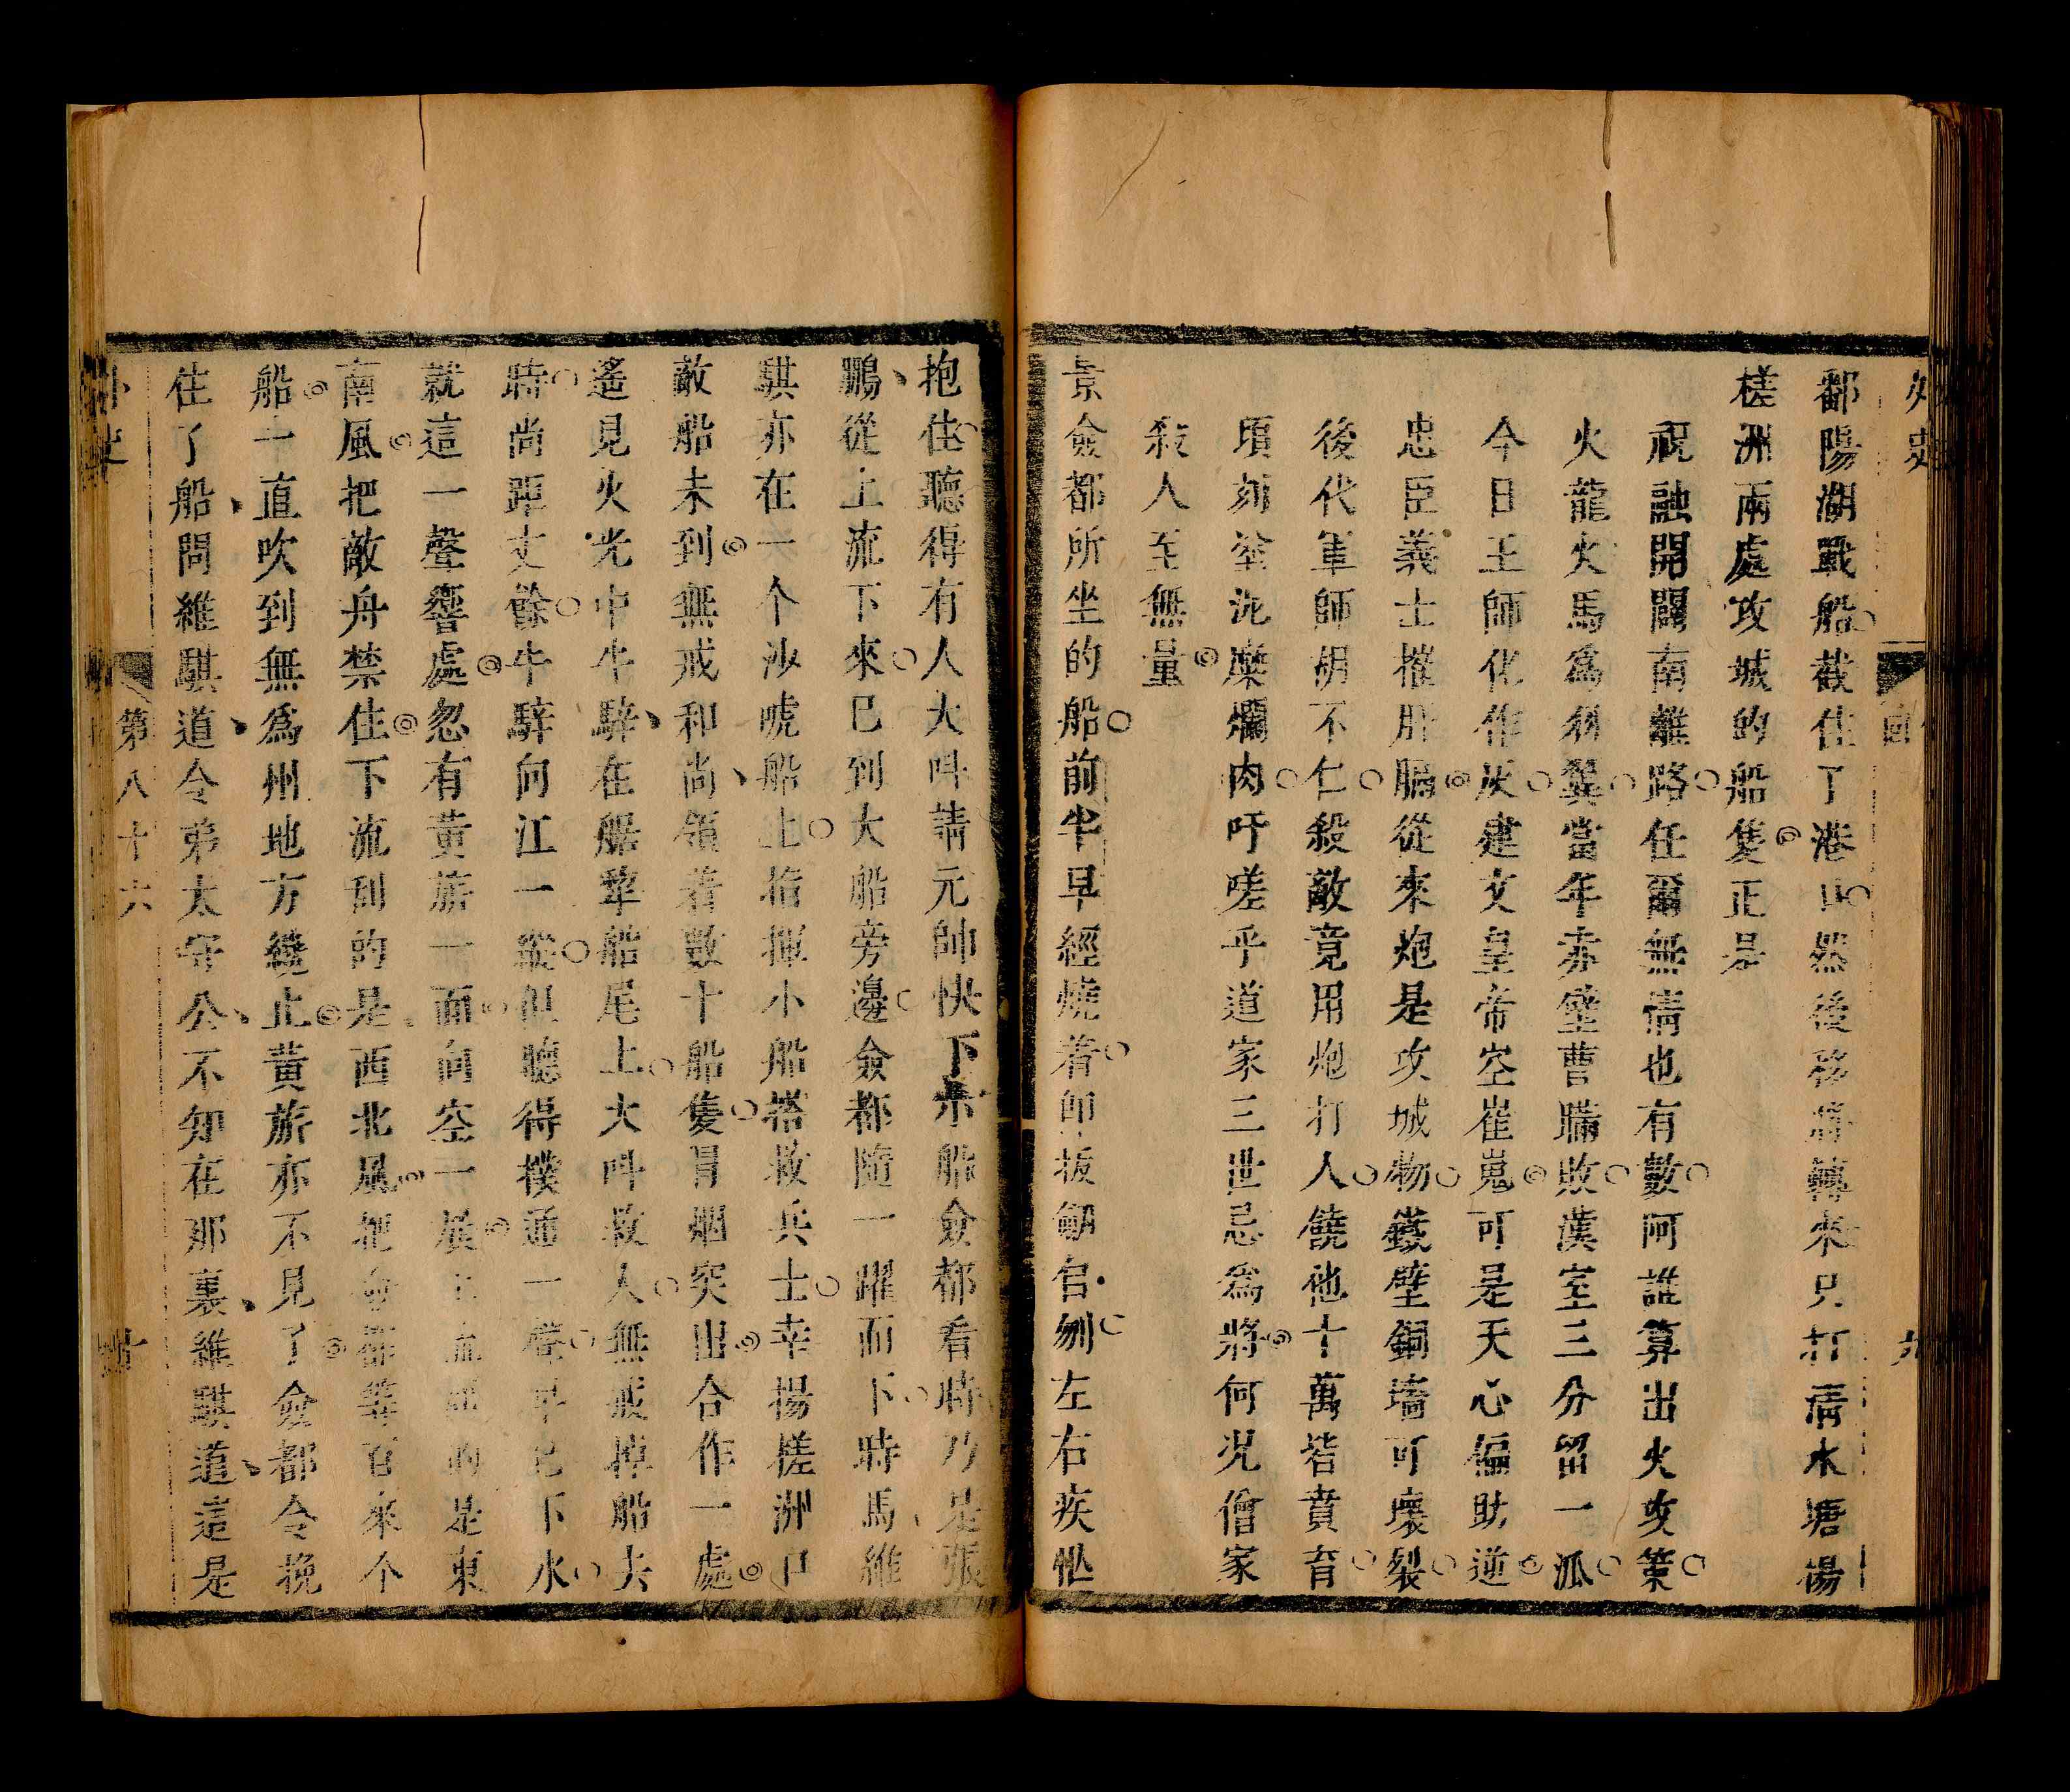 外史
鄱陽湖戰船截住了港口然後移將轉來只打清水塘楊
槎洲兩處攻城的船隻正是
祝融開闢南離路任爾無情也有數阿誰算出火攻策
火龍火馬爲羽翼當年赤壁曹瞞敗漢室三分留一派
今日王師化作灰建文皇帝空崔嵬可是天心偏助逆
忠臣義士摧肝膈從來炮是攻城物鐵壁銅墻可壞裂
後代軍師胡不仁殺敵竟用炮打人饒他十萬皆賁育
頃刻塗泥糜爛肉吁嗟乎道家三世忌爲將何況僧家
殺人至無量
景僉都所坐的船前半早經燒着即拔劒自刎左右疾忙
抱住聽得有人大呌請元帥快下小船僉都看時乃是張
鵬從上流下來已到大船旁邊僉都隨一躍而下時馬維
騏亦在一个沙唬船上指揮小船搭救兵士幸楊槎洲口
敵船未到無戒和尚領着數十船隻冒烟突出合作一處
遙見火光中牛騂在艍犂船尾上大呌救人無戒掉船去
時尚距丈餘牛騂向江一縱但聽得撲通一聲早已下水
就這一聲響處忽有黃旂一面向空一展上流的是東
南風把敵舟禁住下流刮的是西北風把僉都等百來个
船一直吹到無爲州地方纔止黃旂亦不見了僉都令挽
住了船問維騏道令弟太守公不知在那裏維騏道這是
外史
第八十六